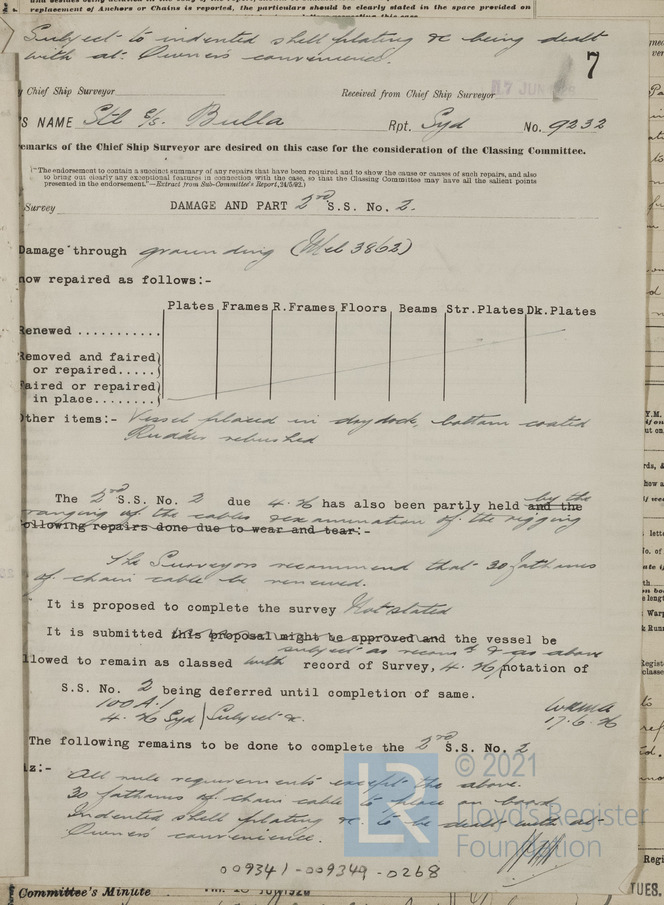 replacement of Anchors or Chains is reported, the particulars should be clearly stated in the space provided on
Subject to indented shell plating &c being dealt
with at Owners convenience.
7
Chief Ship Surveyor
Received from Chief Ship Surveyor
17 JUN
'S NAME Stl S/S. Bulla Rpt. Syd No. 9232
emarks of the Chief Ship Surveyor are desired on this case for the consideration of the Classing Committee.
"The endorsement to contain a succinct summary of any repairs that have been required and to show the cause or causes of such repairs, and also
to bring out clearly any exceptional features in connection with the case, so that the Classing Committee may have all the salient points
presented in the endorsement."—Extract from Sub-Committee's Report, 24/5/92.)
Survey DAMAGE AND PART 2nd S.S. No. 2.
Damage through grounding (Mel 3862)
now repaired as follows:-
Plates Frames R.Frames Floors Beams Str.Plates Dk.Plates
Renewed ...........
Removed and faired
or repaired.....
Faired or repaired
in place........
Other items:- Vessel placed in drydock, bottom coated
Rudder rebushed
The 2nd S.S. No. 2 due 4.26 has also been partly held and the by the
ranging of the cables & examination of the rigging
following repairs done due to wear and tear:-
The Surveyors recommend that 30 fathoms
of chain cable be renewed.
It is proposed to complete the survey Not stated
It is submitted this proposal might be approved and the vessel be
subject as recomd & as above
llowed to remain as classed with record of Survey, 4.26, notation of
S.S. No. 2 being deferred until completion of same.
100 A.1
4.26 Syd Subject &c.
17.6.26
The following remains to be done to complete the 2nd S.S. No. 2
iz:-
All rule requirements except the above.
30 fathoms of chain cable to place on board
Indented shell plating &c. to be dealt with at
Owners convenience.
© 2021
LR
Lloyd's Register
Foundation
009341-009349-0268
Committee's Minute
TUES.